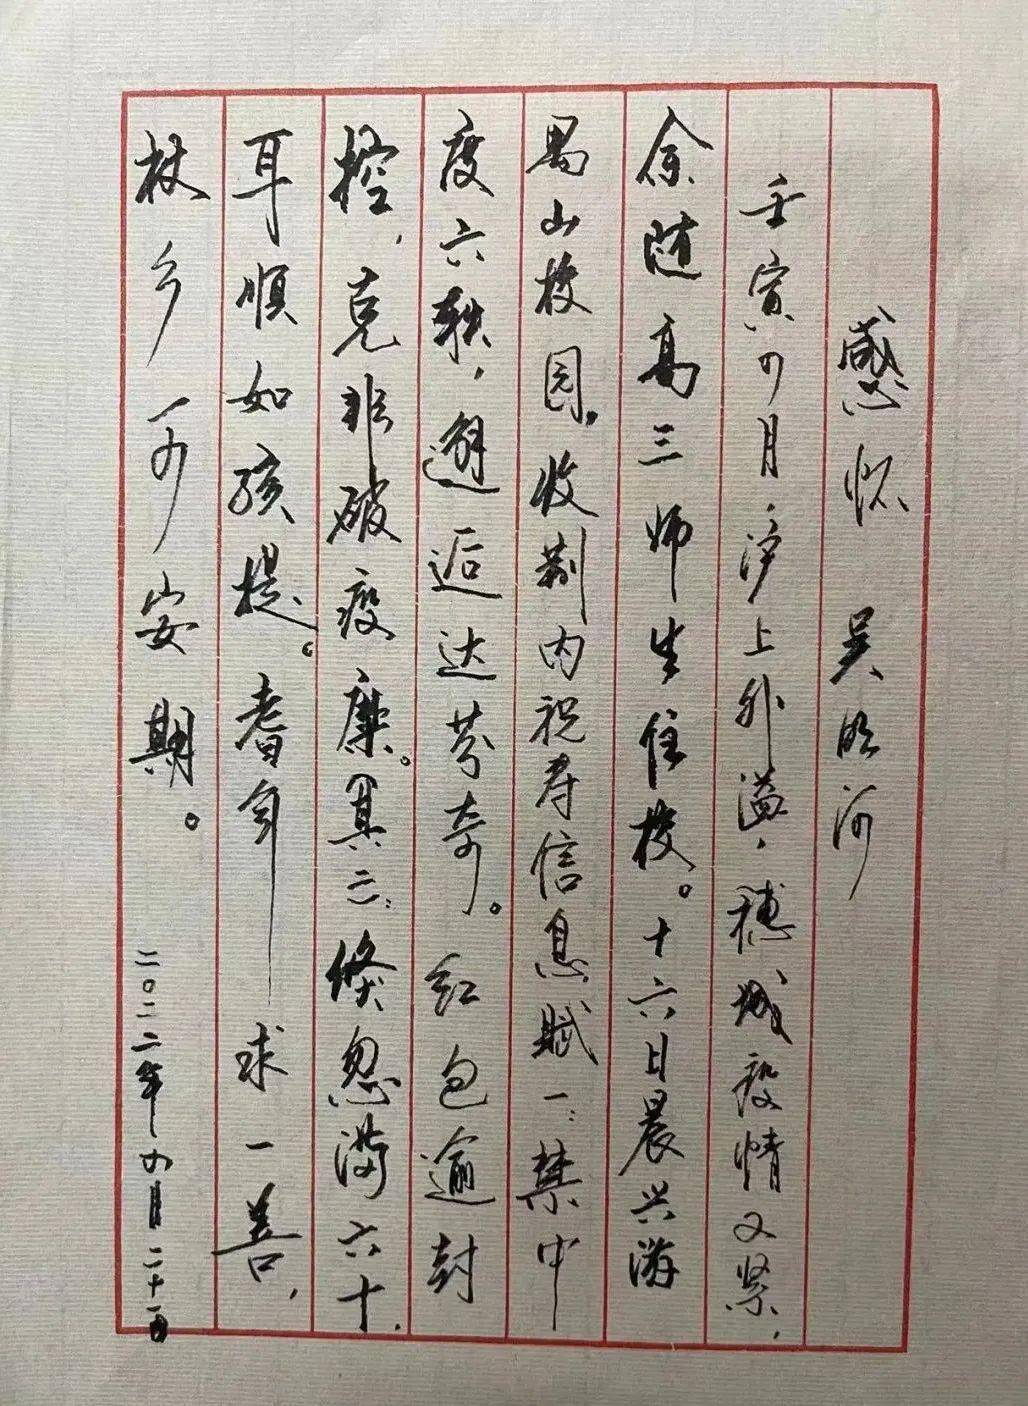 感怀 吴明河
壬寅四月,沪上外溢,穗城疫情又紧,
余随高三师生住校。十六日晨兴游
禺山校园。收荆内祝寿信息,赋一:禁中
度六轶,邂逅达芬奇。红包逾封
控,克非破疫糜。其二:倏忽满六十,
耳顺如孩提。耆年求一善,
杖乡可安期。
二〇二二年四月二十一日